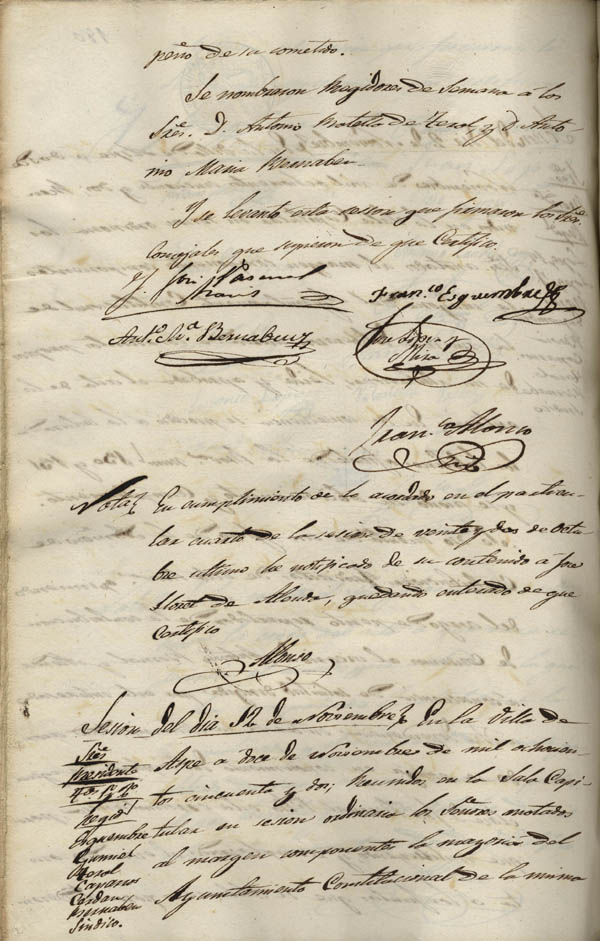 peño de su cometido.
Se nombraron Regidores de Semana a los
Sres. D. Antonio de Terol y D. Anto-
nio Maria Bernabeu.
Y se levantó esta sesion que firmaron los Sres.
Concejales que supieron de que Certifico.
José Pascual
Franco. Esquembre
Anto. Ma. Bernabeu
Mira
Franco. Alonso
Nota
En cumplimiento de lo acordado en el particu-
lar cuarto de la sesion de veinte y dos de Octu-
bre ultimo he notificado de su contenido á José
Lloret de Alonso, quedando enterado de que
Certifico
Alonso
Sesion del dia 12 de Noviembre
En la Villa de
Aspe a doce de Noviembre de mil ochocien-
tos cincuenta y dos; Reunidos en la Sala Capi-
tular en sesion ordinaria los Señores anotados
al margen componentes la mayoria del
Ayuntamiento Constitucional de la misma
Sres.
Presidente
Regid.
Esquembre
Gumiel
Terol
Cañavas
Cerdan
Bernabeu
Sindico.